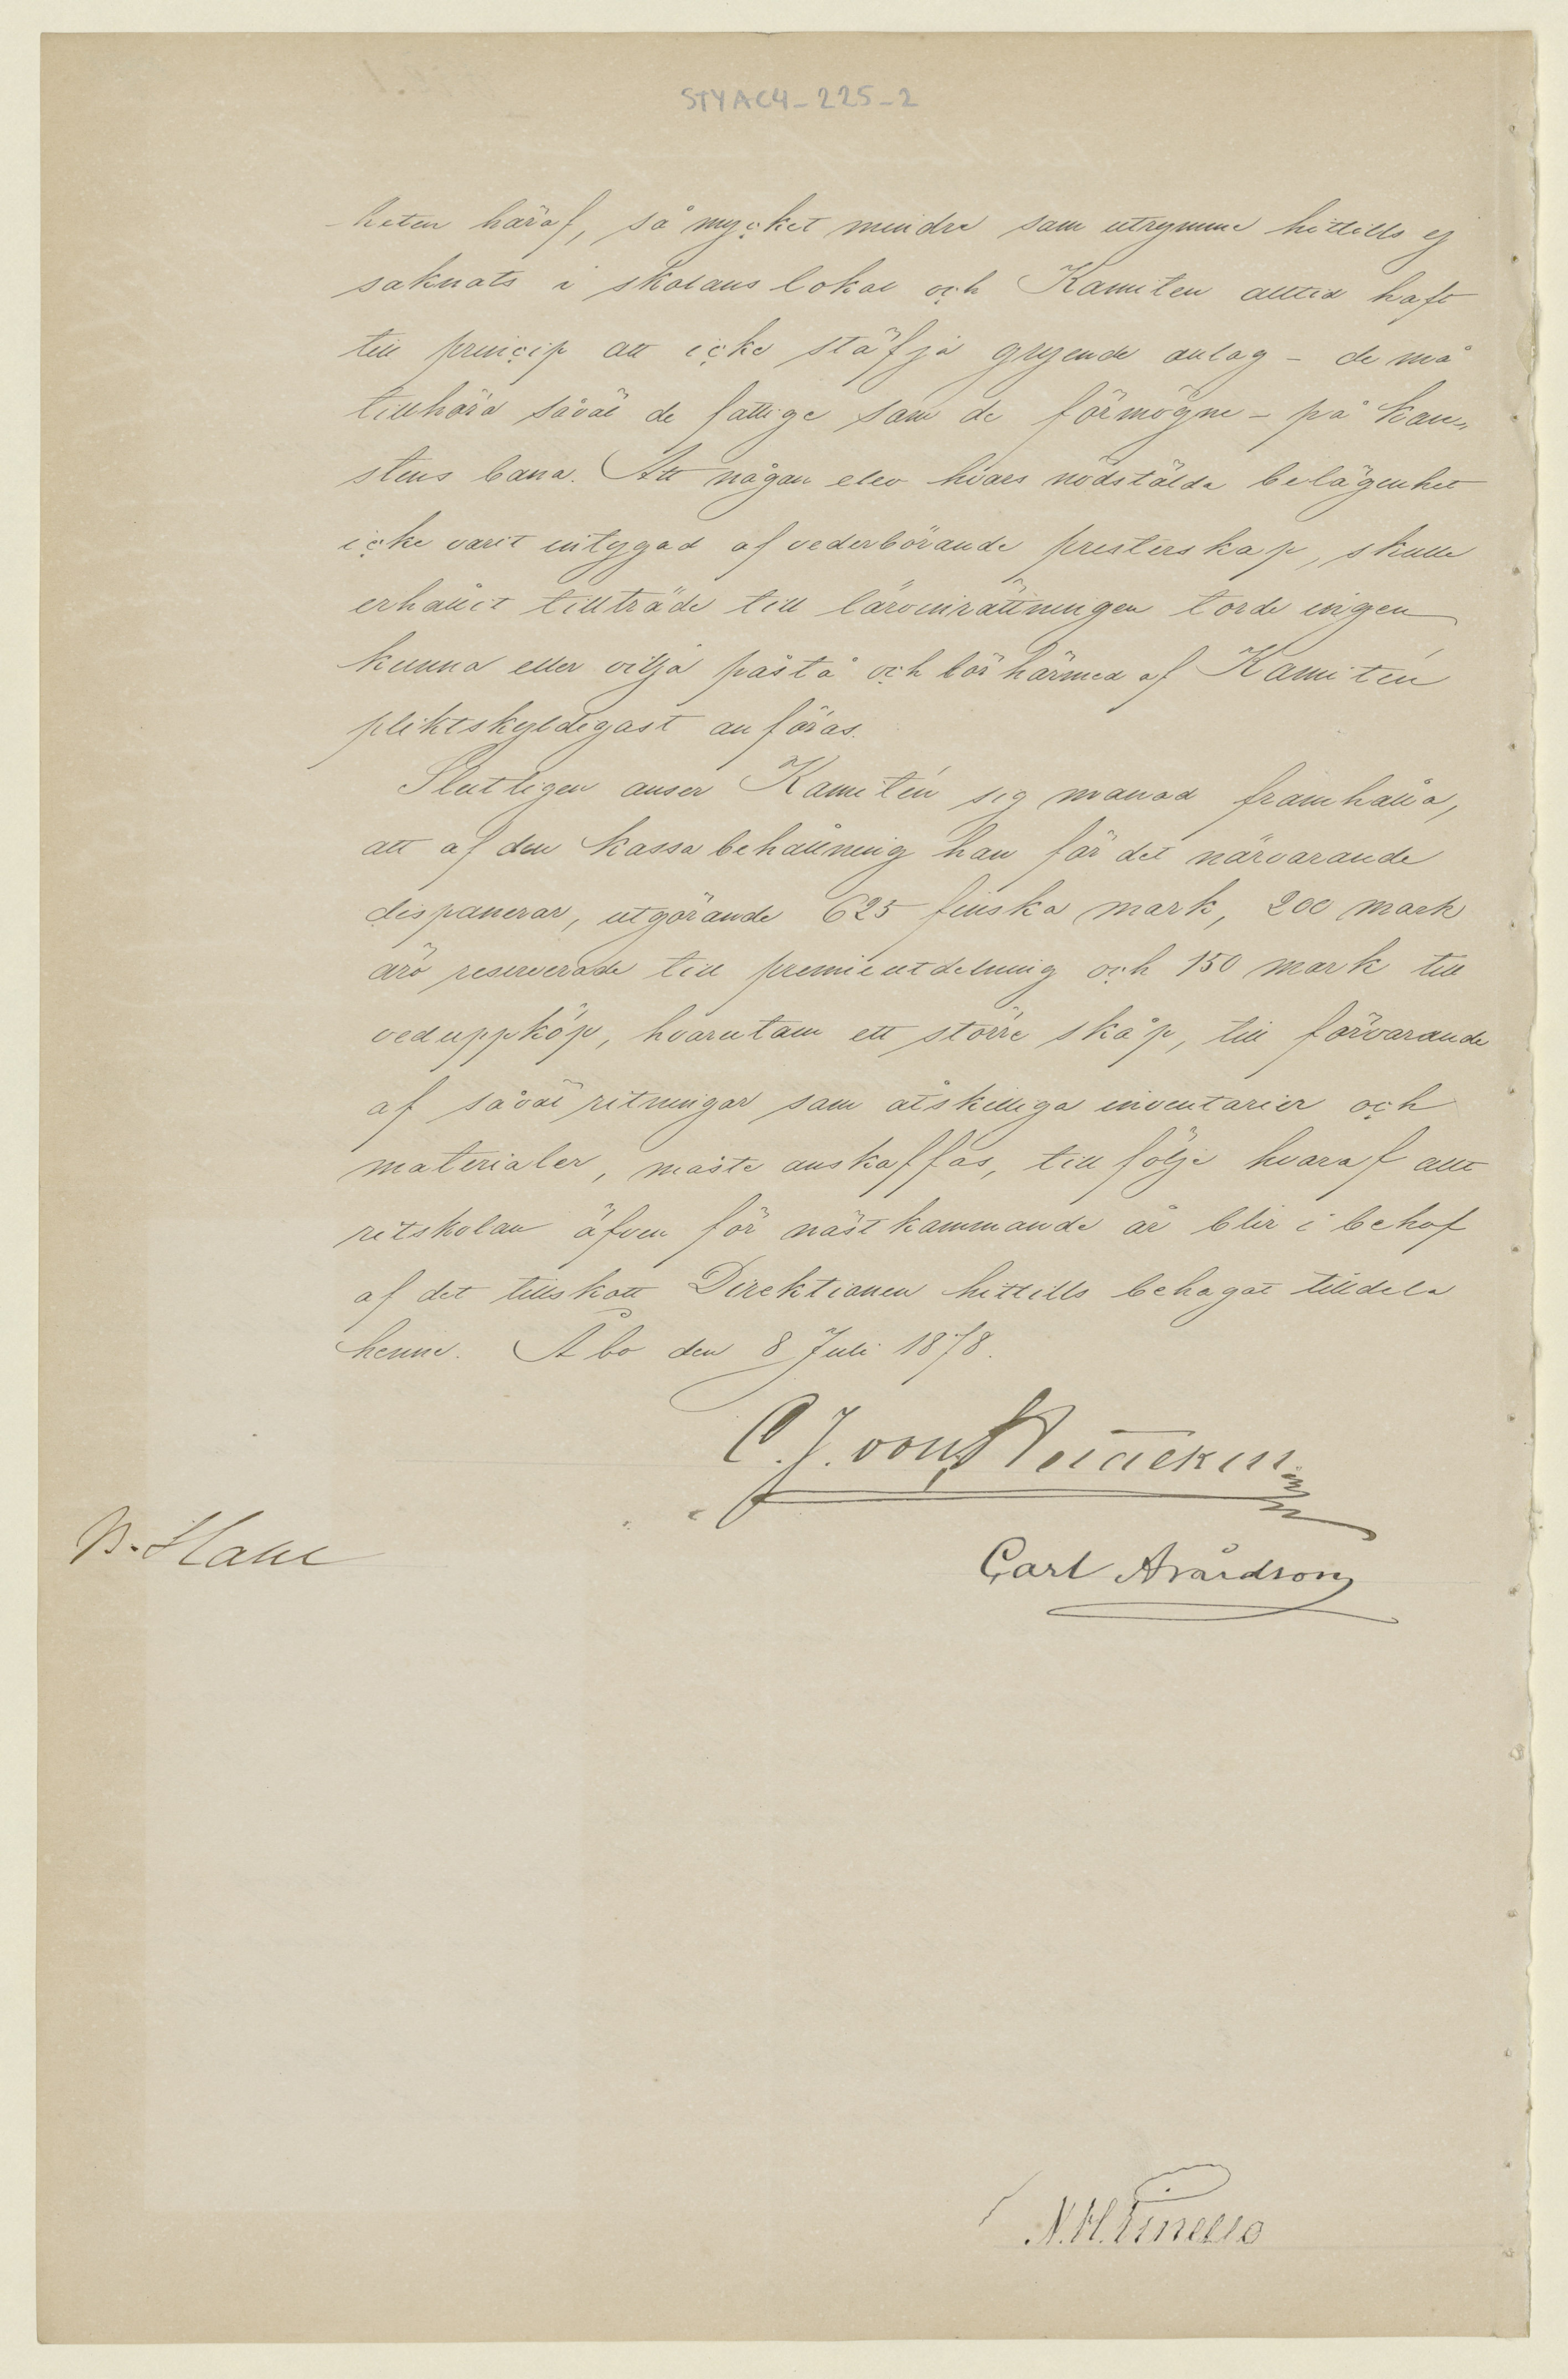 STYAC4_225_2
-heten häraf, så mycket mindre som utrymme hittills ej
saknats i skolans lokal och Komiten alltid haft
till princip att icke stäfja gryende anlag – de må
tillhöra såväl de fattige som de förmögne – på kon-
stens bana. Att någon elev hvars nödstälda belägenhet
icke varit intygad af vederbörande presterskap, skulle
erhållit tillträde till läroinrättningen torde ingen
kunna eller vilja påstå och bör härmed af Komitén
pliktskyldigast anföras.
Slutligen anser Komitén sig manad framhålla,
att af den kassabehållning han för det närvarande
disponerar, utgörande 625 finska mark, 200 mark
äro reserverade till premieutdelning och 150 mark till
veduppköp, hvarutom ett större skåp, till förvarande
af såväl ritningar som åtskilliga inventarier och
materialer, måste anskaffas, till följe hvaraf allt
ritskolan äfven för nästkommande år blir i behof
af det tillskott Direktionen hittills behagat tilldela
henne. Åbo den 8 Juli 1878.
C. J. von
Carl Arvidson
N. H. Pinello